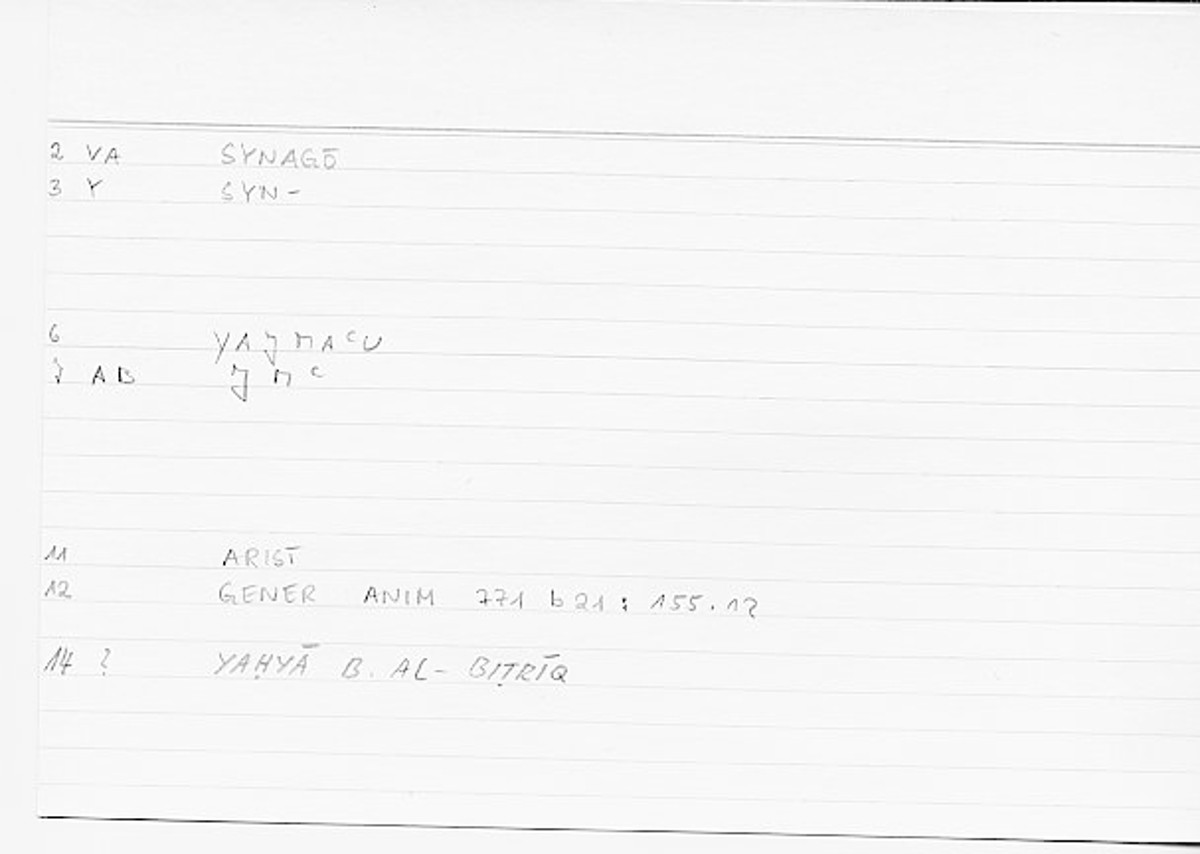 2 VA SYNAGŌ
3 Y SYN-
6 YAJMAʿU
7 AB JMʿ
11 ARIST
12 GENER ANIM 771 b 21 : 155.12
14 ? YAḤYĀ B. AL-BIṬRĪQ